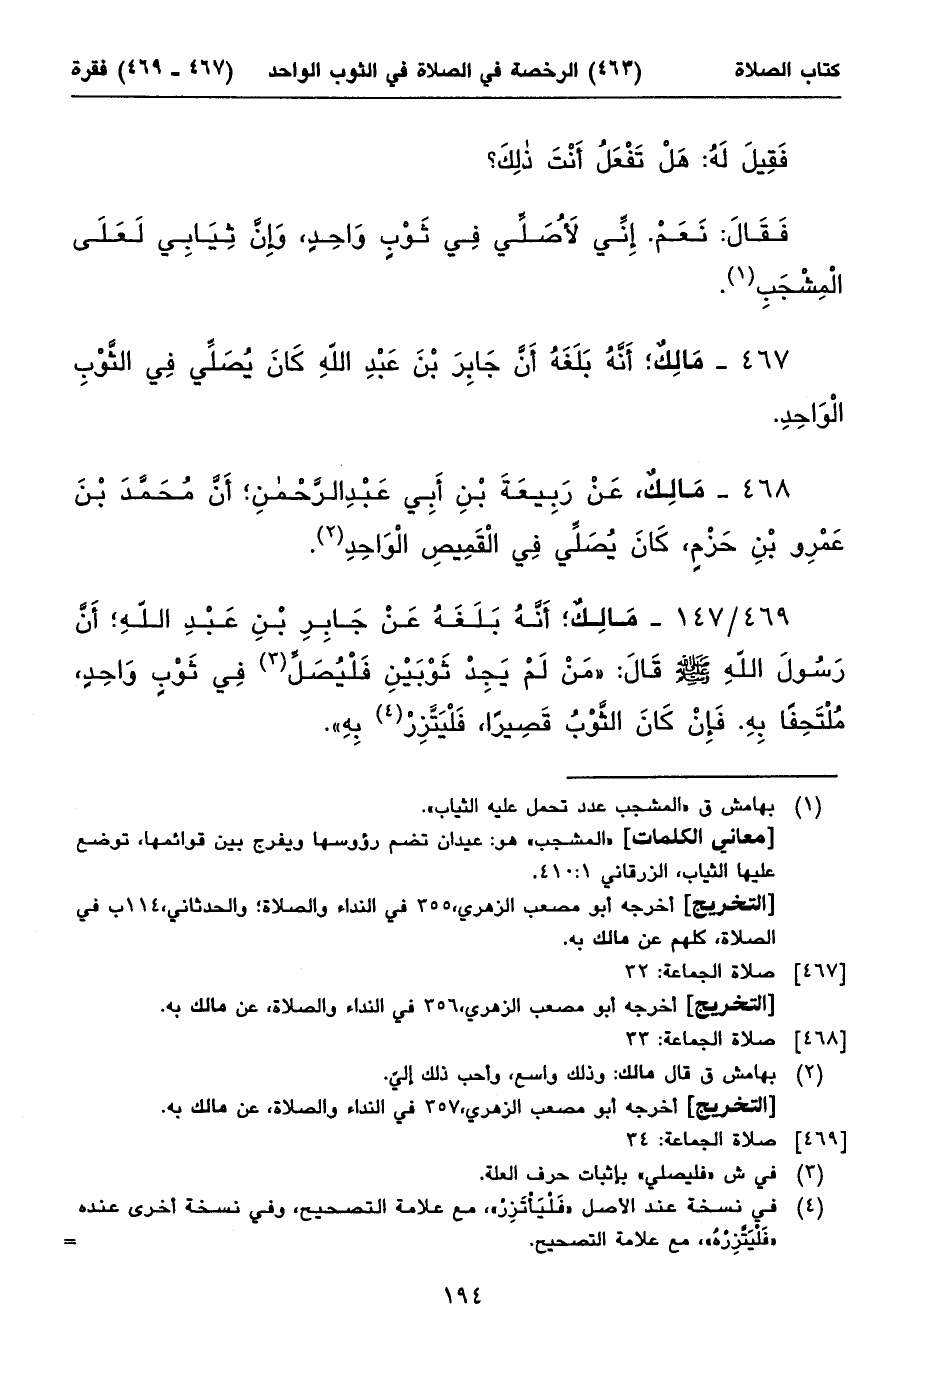 كتاب الصلاة (٤٦٣) الرخصة في الصلاة في الثوب الواحد (٤٦٧ - ٤٦٩) فقرة
فَقِيلَ لَهُ: هَلْ تَفْعَلُ أَنْتَ ذٰلِكَ؟
فَقَالَ: نَعَمْ. إِنِّي لَأُصَلِّي فِي ثَوْبٍ وَاحِدٍ، وَإِنَّ ثِيَابِي لَعَلَى
الْمِشْجَبِ(١).
٤٦٧ - مَالِكٌ؛ أَنَّهُ بَلَغَهُ أَنَّ جَابِرَ بْنَ عَبْدِ اللّهِ كَانَ يُصَلِّي فِي الثَّوْبِ
الْوَاحِدِ.
٤٦٨ - مَالِكٌ، عَنْ رَبِيعَةَ بْنِ أَبِي عَبْدِالرَّحْمٰنِ؛ أَنَّ مُحَمَّدَ بْنَ
عَمْرِو بْنِ حَزْمٍ، كَانَ يُصَلِّي فِي الْقَمِيصِ الْوَاحِدِ(٢).
١٤٧/٤٦٩ - مَالِكٌ؛ أَنَّهُ بَلَغَهُ عَنْ جَابِرِ بْنِ عَبْدِ اللّهِ؛ أَنَّ
رَسُولَ اللّهِ ﷺ قَالَ: «مَنْ لَمْ يَجِدْ ثَوْبَيْنِ فَلْيُصَلِّ(٣) فِي ثَوْبٍ وَاحِدٍ،
مُلْتَحِفًا بِهِ. فَإِنْ كَانَ الثَّوْبُ قَصِيرًا، فَلْيَتَّزِرْ(٤) بِهِ».
(١) بهامش ق «المشجب عدد تحمل عليه الثياب».
[معاني الكلمات] «المشجب» هو: عيدان تضم رؤوسها ويفرج بين قوائمها، توضع
عليها الثياب، الزرقاني ١:‏٤١٠.
[التخريج] أخرجه أبو مصعب الزهري،٣٥٥ في النداء والصلاة؛ والحدثاني،١١٤ب في
الصلاة، كلهم عن مالك به.
[٤٦٧] صلاة الجماعة: ٣٢
[التخريج] أخرجه أبو مصعب الزهري،٣٥٦ في النداء والصلاة، عن مالك به.
[٤٦٨] صلاة الجماعة: ٣٣
(٢) بهامش ق قال مالك: وذلك واسع، وأحب ذلك إليّ.
[التخريج] أخرجه أبو مصعب الزهري،٣٥٧ في النداء والصلاة، عن مالك به.
[٤٦٩] صلاة الجماعة: ٣٤
(٣) في ش «فليصلي» بإثبات حرف العلة.
(٤) في نسخة عند الأصل «فَلْيَأْتَزِرْ»، مع علامة التصحيح، وفي نسخة أخرى عنده
«فَلْيَتَّزِرْهُ»، مع علامة التصحيح. =
١٩٤